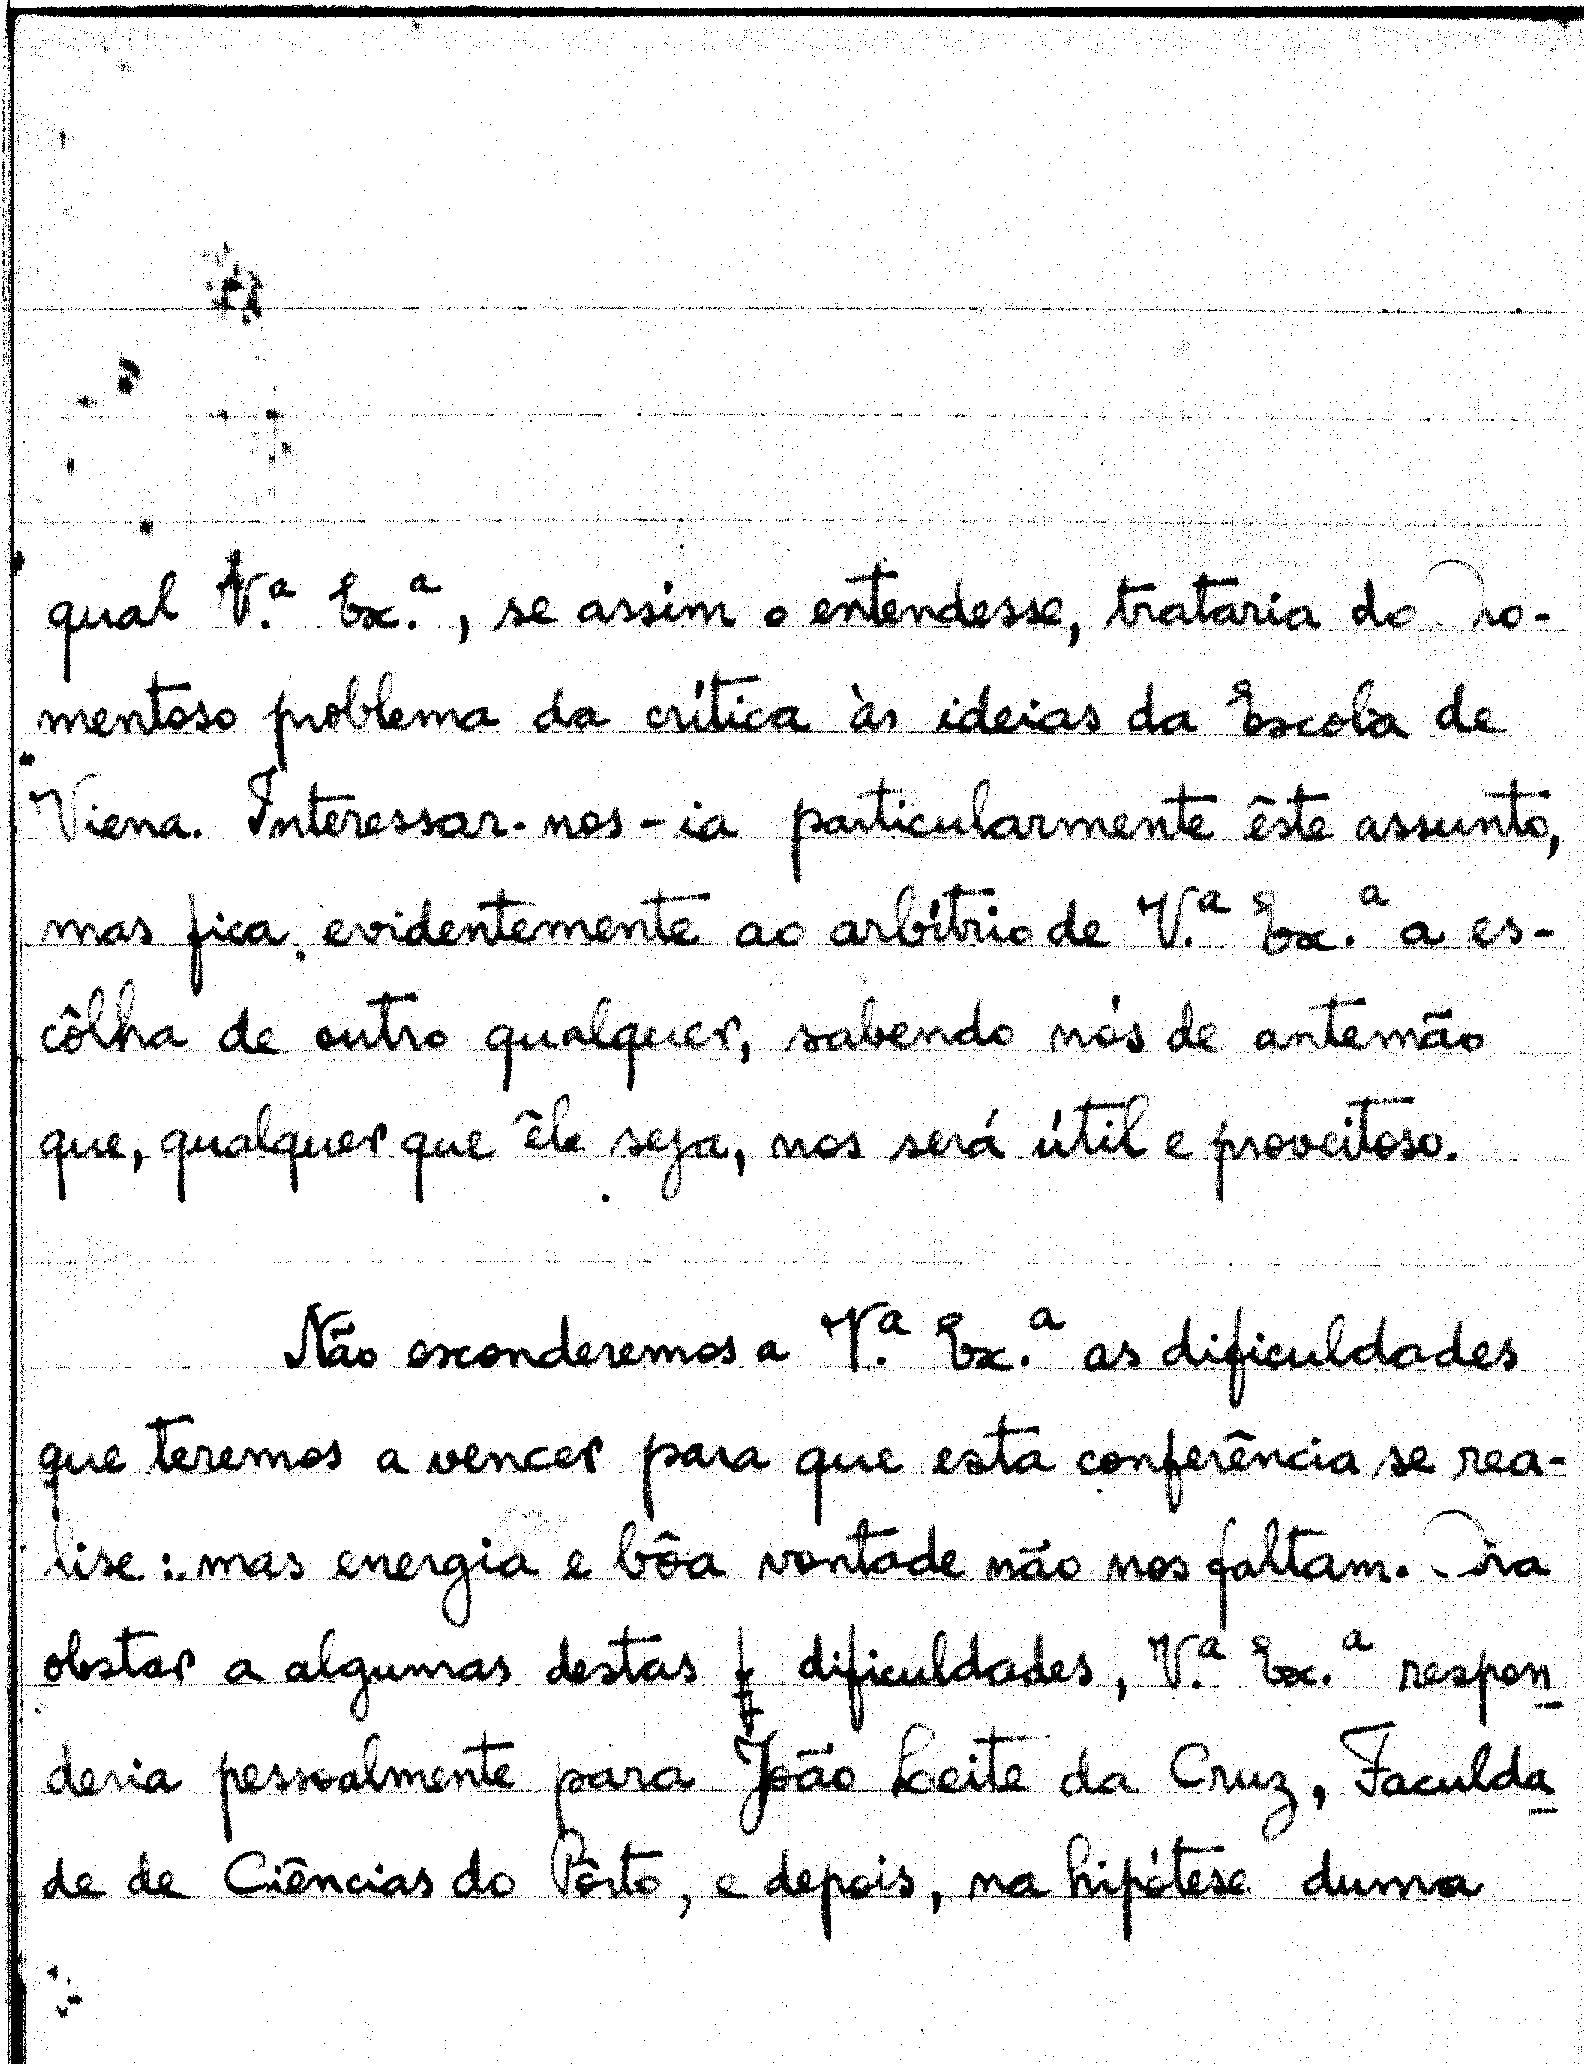 qual V.ª Ex.ª, se assim o entendesse, trataria do mo-
mentoso problema da crítica às ideias da Escola de
Viena. Interessar-nos-ia particularmente êste assunto,
mas fica, evidentemente ao arbítrio de V.ª Ex.ª a es-
côlha de outro qualquer, sabendo nós de antemão
que, qualquer que êle seja, nos será útil e proveitoso.
Não esconderemos a V.ª Ex.ª as dificuldades
que teremos a vencer para que esta conferência se rea-
lise: mas energia e bôa vontade não nos faltam.
obstar a algumas destas dificuldades, V.ª Ex.ª respon
deria pessoalmente para João Leite da Cruz, Faculda
de de Ciências do Pôrto, e depois, na hipótese duma